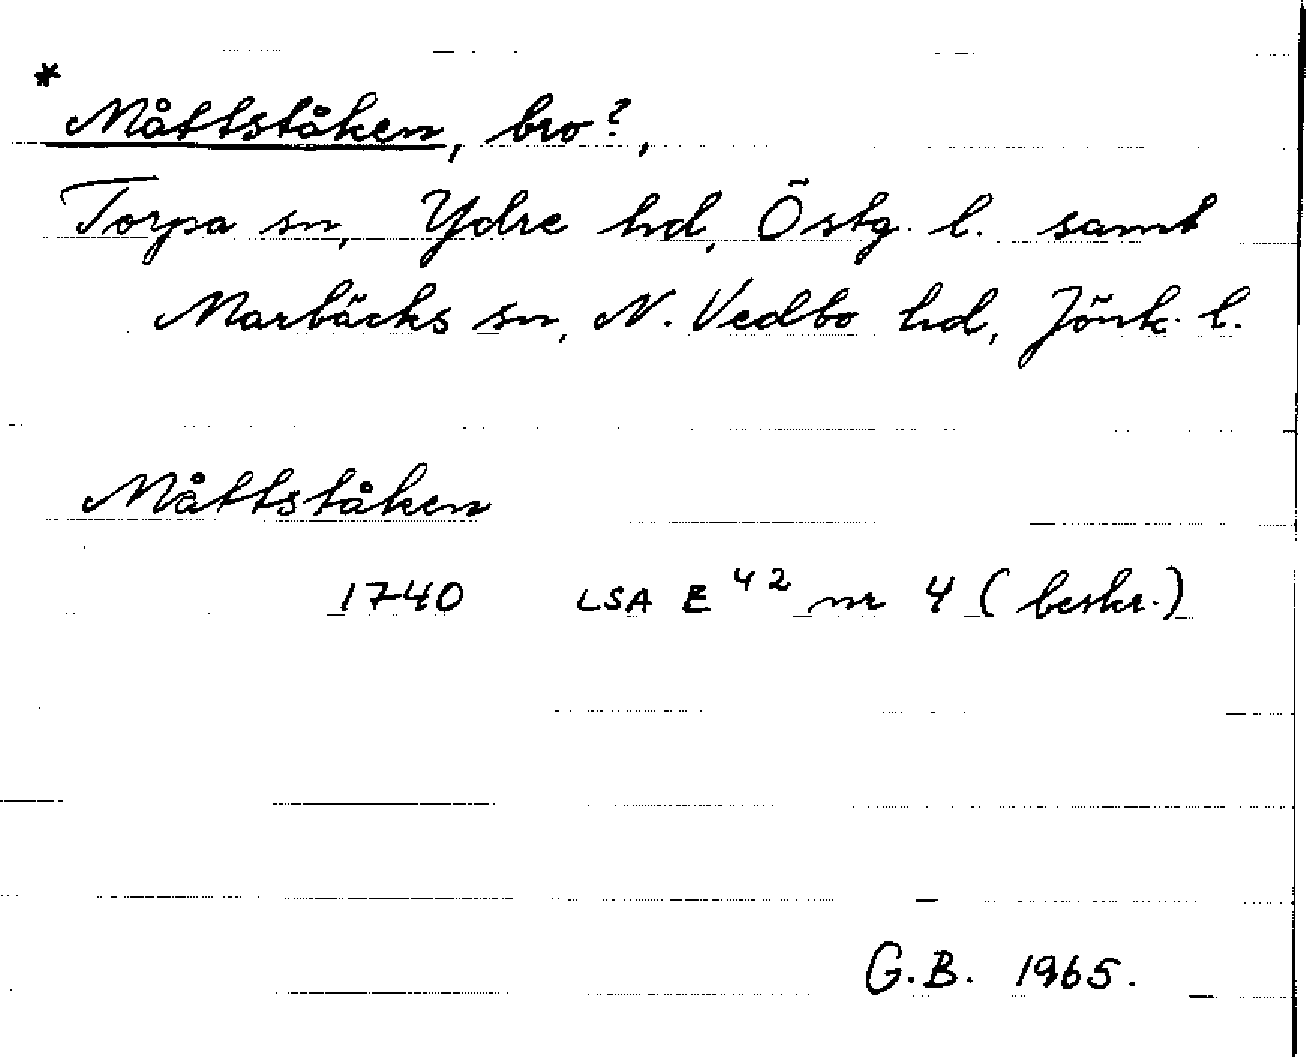 * Måttståken, bro?,
Torpa sn, Ydre hd, Östg. l. samt
Marbäcks sn, N. Vedbo hd, Jönk. l.
Måttståken
1740 LSA E 42 nr 4 (beskr.)
G.B. 1965.